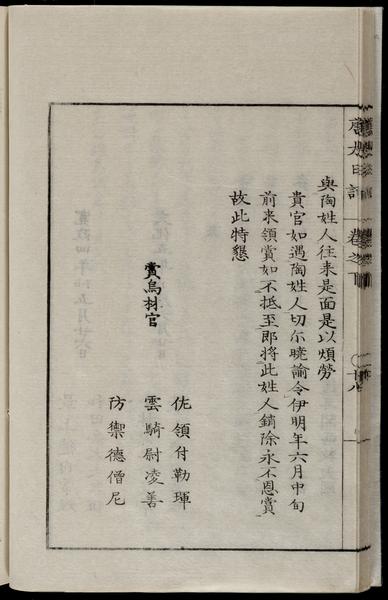 與陶姓人往来是面是以煩勞
貴官如遇陶姓人切尓曉諭令伊明年六月中旬
前来領賞如不抵至即將此姓人銷除永不恩賞
故此特懇
賞烏林官
佐領付勒琿
雲騎尉凌善
防禦德僧尼
卷之下